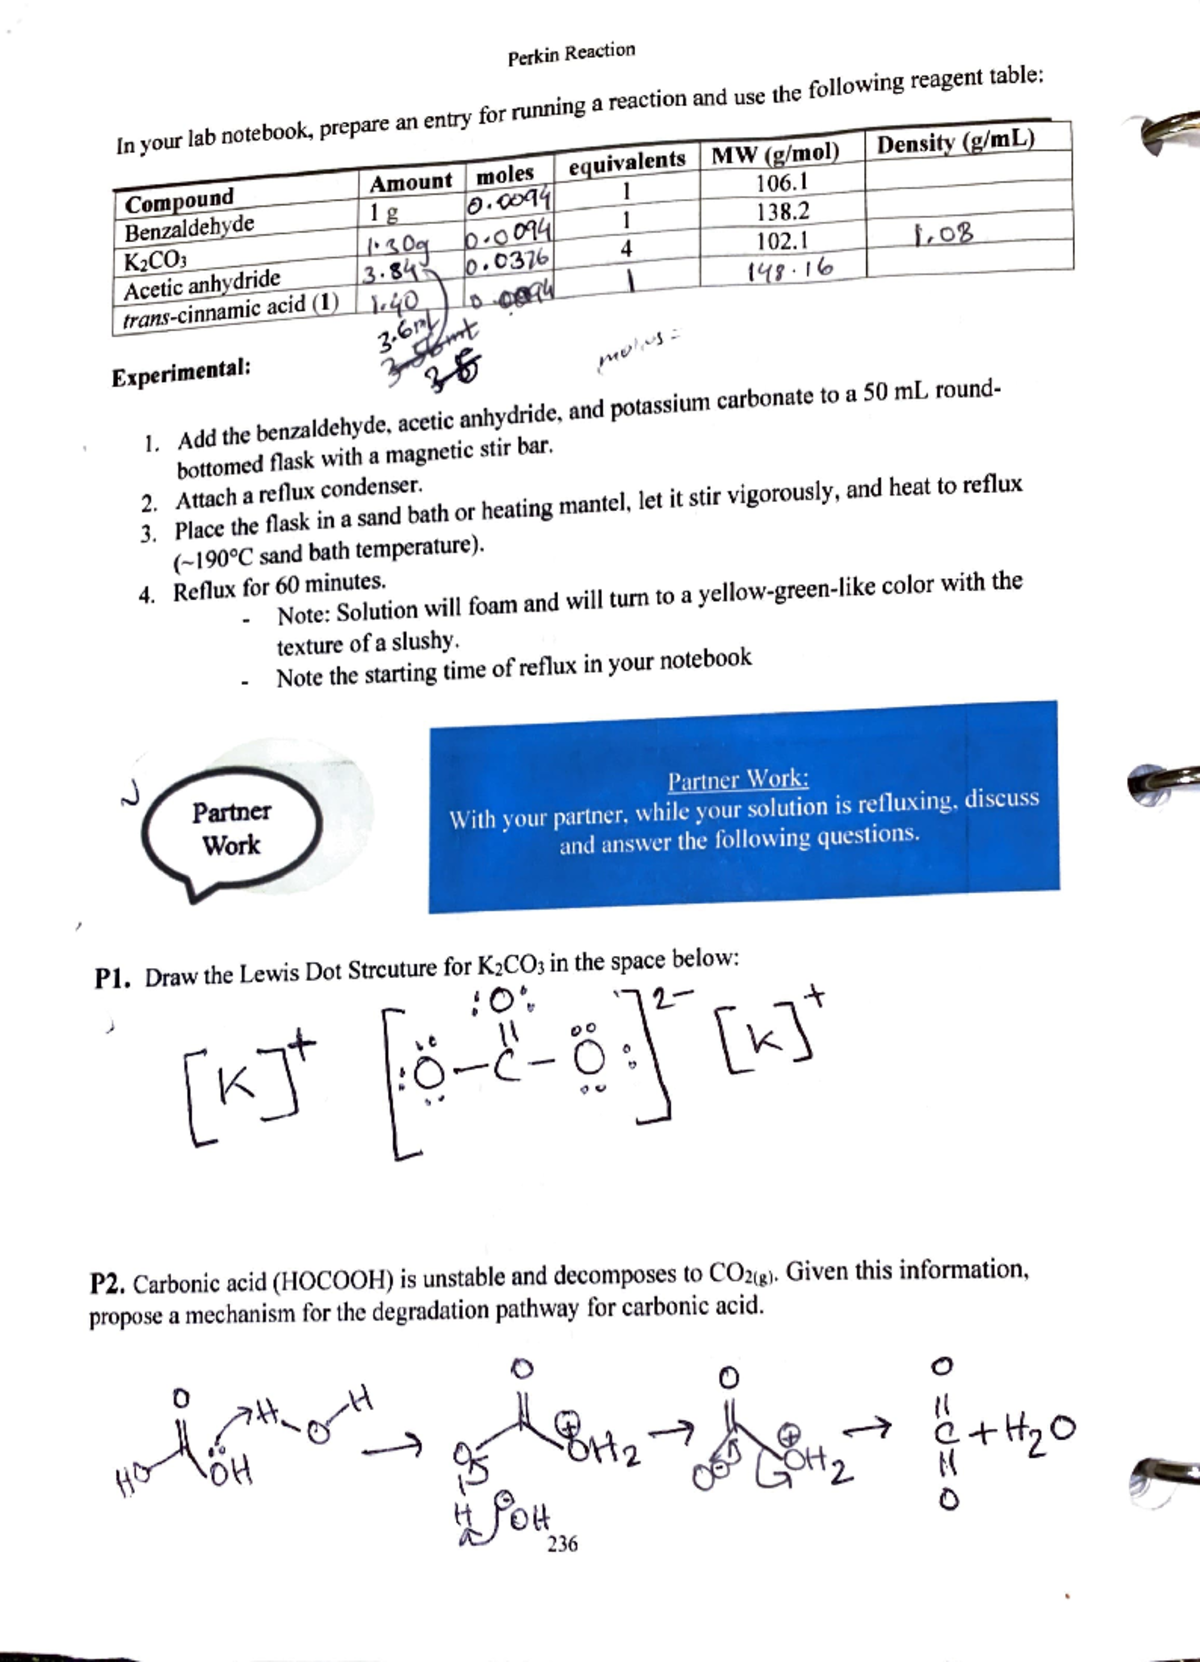 Perkin Reaction
In your lab notebook, prepare an entry for running a reaction and use the following reagent table:
Compound Amount moles equivalents MW (g/mol) Density (g/mL)
Benzaldehyde 1 g 0.0094 1 106.1
K2CO3 1.30g 0.0094 1 138.2
Acetic anhydride 3.84 0.0376 4 102.1 1.08
trans-cinnamic acid (1) 1.40 0.0094 1 148.16
3.6ml
Experimental:
moles =
1. Add the benzaldehyde, acetic anhydride, and potassium carbonate to a 50 mL round-
bottomed flask with a magnetic stir bar.
2. Attach a reflux condenser.
3. Place the flask in a sand bath or heating mantel, let it stir vigorously, and heat to reflux
(~190°C sand bath temperature).
4. Reflux for 60 minutes.
- Note: Solution will foam and will turn to a yellow-green-like color with the
texture of a slushy.
- Note the starting time of reflux in your notebook
Partner
Work
Partner Work:
With your partner, while your solution is refluxing, discuss
and answer the following questions.
P1. Draw the Lewis Dot Strcuture for K2CO3 in the space below:
:O:
[K]+ [:O-C-O:]2- [K]+
P2. Carbonic acid (HOCOOH) is unstable and decomposes to CO2(g). Given this information,
propose a mechanism for the degradation pathway for carbonic acid.
O O O O
HO OH H-O-H → O H OH2 → O OH2 → C + H2O
OH O
236